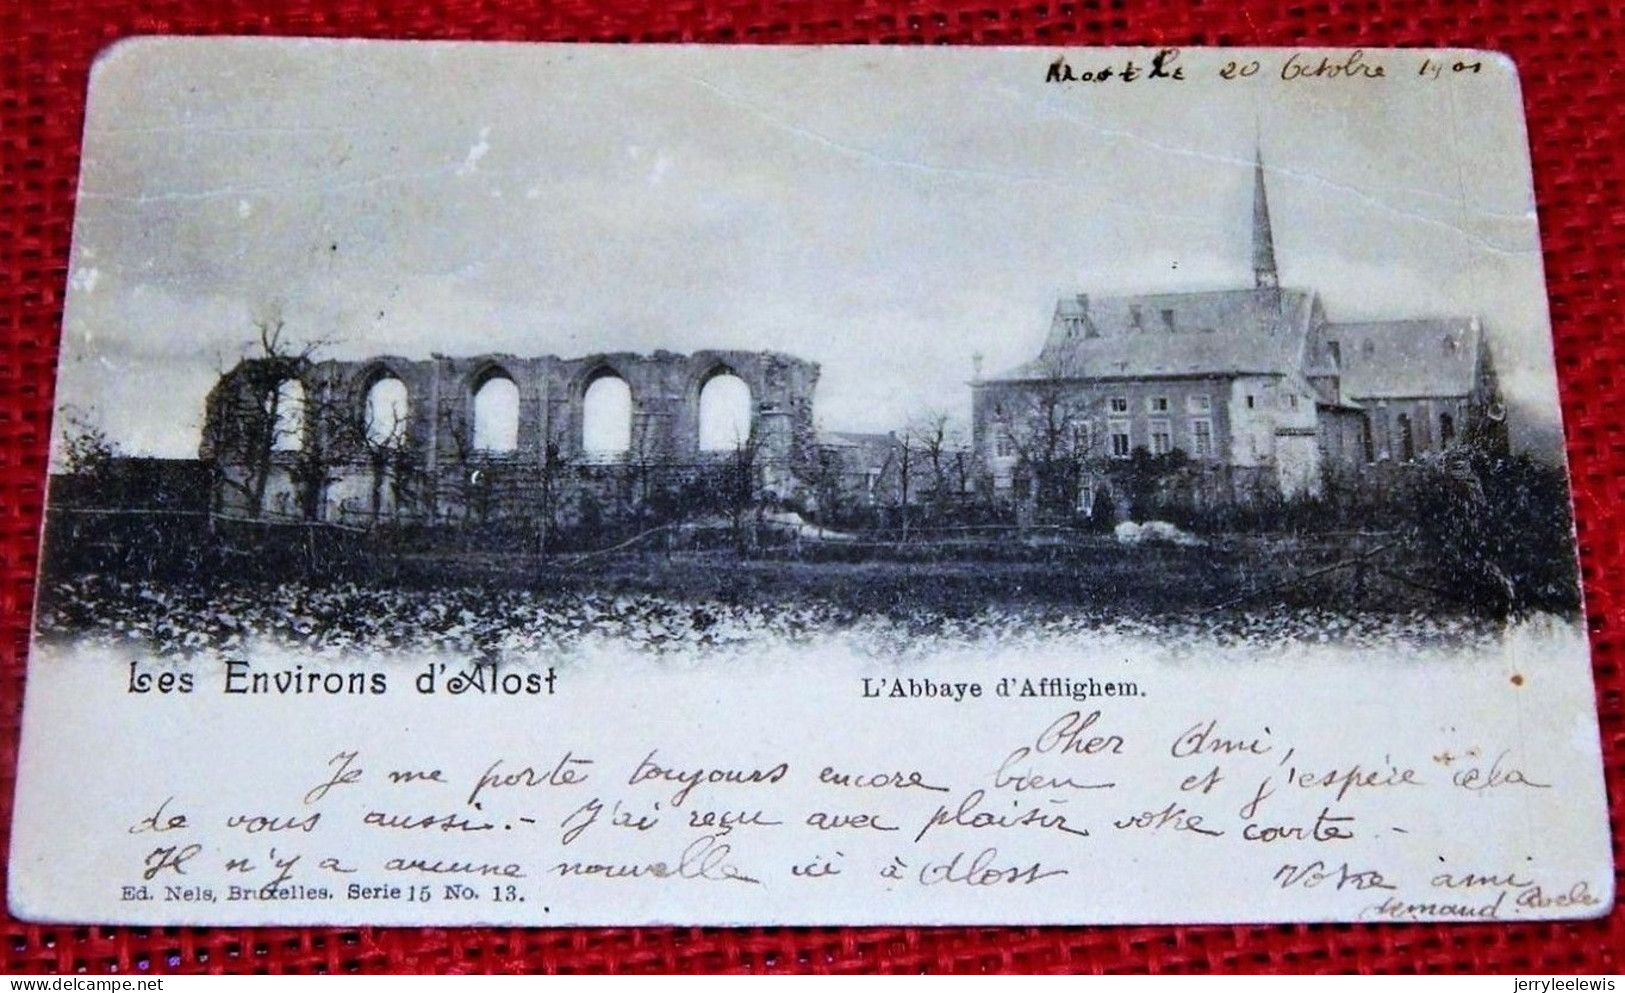 Alost le 20 Octobre 1901
Les Environs d'Alost
L'Abbaye d'Afflighem.
Cher Ami,
Je me porte toujours encore bien et j'espère cela
de vous aussi.- J'ai reçu avec plaisir votre carte.-
Il n'y a aucune nouvelle ici à Alost
Votre ami
Ed. Nels, Bruxelles. Serie 15 No. 13.
delcampe.net
jerryleelewis